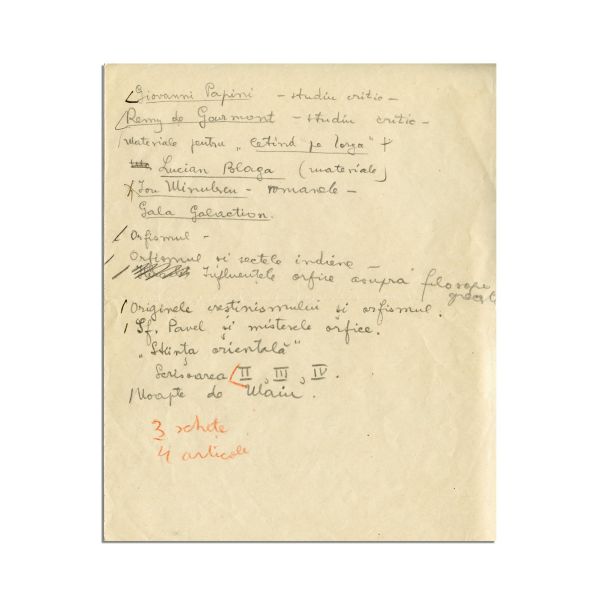 Giovanni Papini – studiu critic –
Remy de Gourmont – studiu critic –
Materiale pentru „Cetind pe Iorga" +
Lucian Blaga (materiale)
Ion Minulescu – romanele –
Gala Galaction.
Orfismul –
Orfismul si sectele indiene –
Influențele orfice asupra filosofiei grecești
Originele creștinismului și orfismul.
Sf. Pavel și misterele orfice.
„Știința orientală"
Scrisoarea II, III, IV.
Noapte de
3 schițe
4 articole